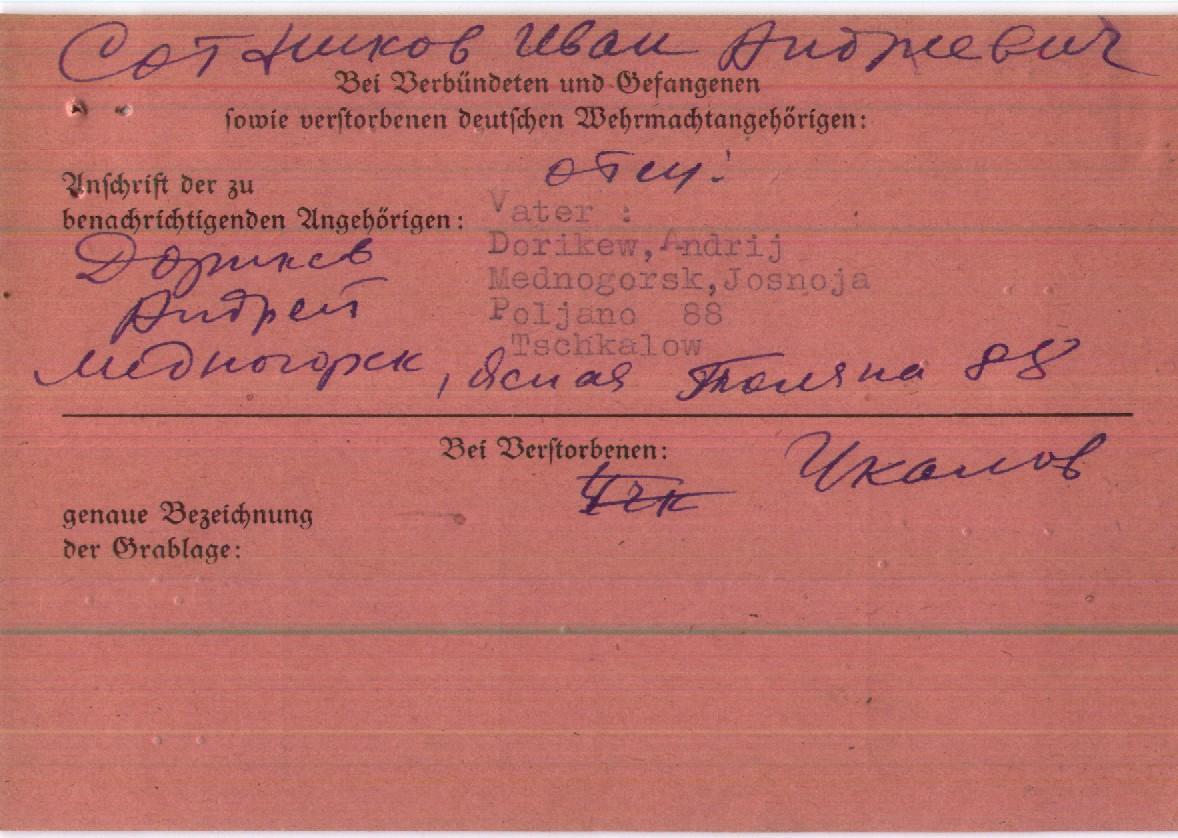 Сотников Иван Андреевич
Bei Verbündeten und Gefangenen
sowie verstorbenen deutschen Wehrmachtangehörigen:
отец:
Anschrift der zu
benachrichtigenden Angehörigen:
Vater :
Dorikew,Andrij
Mednogorsk,Josnoja
Poljano 88
Tschkalow
Дорикев
Андрей
Медногорск, Ясная Поляна 88
Bei Verstorbenen:
Чкалов
genaue Bezeichnung
der Grablage: